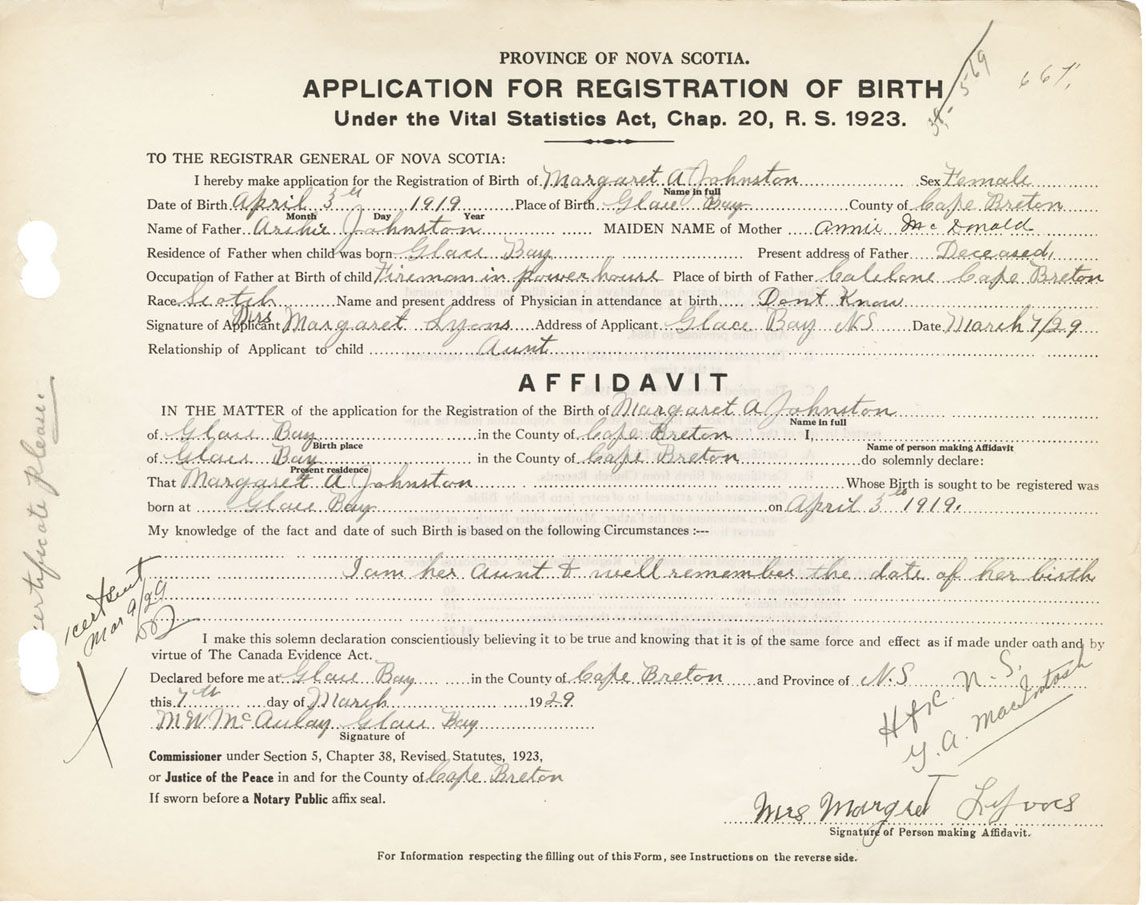 PROVINCE OF NOVA SCOTIA.
APPLICATION FOR REGISTRATION OF BIRTH
Under the Vital Statistics Act, Chap. 20, R. S. 1923.
5-69
667,
TO THE REGISTRAR GENERAL OF NOVA SCOTIA:
I hereby make application for the Registration of Birth of Margaret A Johnston Sex Female
Name in full
Date of Birth April 3rd 1919 Place of Birth Glace Bay County of Cape Breton
Month Day Year
Name of Father Archie Johnston MAIDEN NAME of Mother Annie McDonald
Residence of Father when child was born Glace Bay Present address of Father Deceased,
Occupation of Father at Birth of child Fireman in power house Place of birth of Father Cape Breton
Race Scotch Name and present address of Physician in attendance at birth Dont Know
Signature of Applicant Mrs Margaret Lyons Address of Applicant Glace Bay NS Date March 7/29
Relationship of Applicant to child Aunt
AFFIDAVIT
IN THE MATTER of the application for the Registration of the Birth of Margaret A Johnston
Name in full
of Glace Bay in the County of Cape Breton I,
Birth place Name of person making Affidavit
of Glace Bay in the County of Cape Breton do solemnly declare:
Present residence
That Margaret A Johnston Whose Birth is sought to be registered was
born at Glace Bay on April 3rd 1919.
My knowledge of the fact and date of such Birth is based on the following Circumstances :---
I am her Aunt & well remember the date of her birth
certificate please.
cert sent
Mar 9/29
I make this solemn declaration conscientiously believing it to be true and knowing that it is of the same force and effect as if made under oath and by
virtue of The Canada Evidence Act.
Declared before me at Glace Bay in the County of Cape Breton and Province of N.S
this 7th day of March 1929
M W McAulay Glace Bay
Signature of
Commissioner under Section 5, Chapter 38, Revised Statutes, 1923,
or Justice of the Peace in and for the County of Cape Breton
If sworn before a Notary Public affix seal.
N.S.
A. MacIntosh
Mrs Margret Lyons
Signature of Person making Affidavit.
For Information respecting the filling out of this Form, see Instructions on the reverse side.